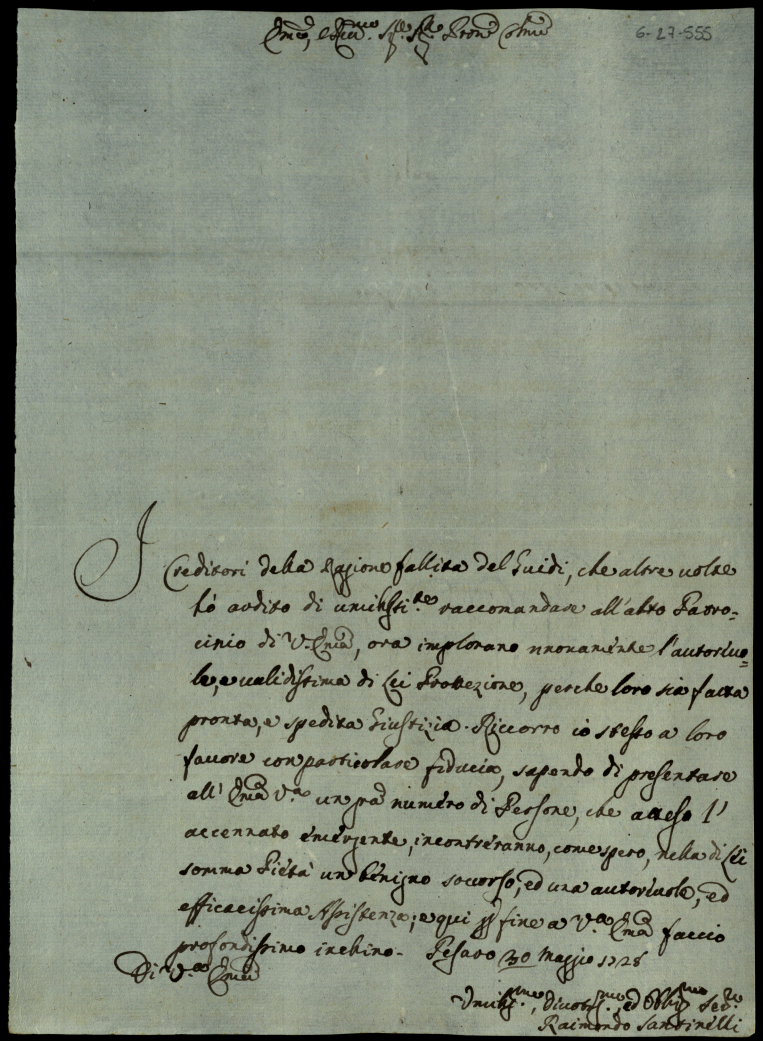 Em.o, e Rev.mo Sig.r Sig.r Pron.e Col.mo
6-27-555
I Creditori della Ragione fallita del Guidi, che altre uolte
hò ardito di umilissi.te raccomandare all'alto Patro-
cinio di V. Em.a, ora implorano nuouamente l'autoreuo-
le, e ualidissima di Lei Protezione, perche loro sia fatta
pronta, e spedita Giustizia. Riccorro io stesso a loro
fauore con particolare fiducia, sapendo di presentare
all' Em.a V.a un gra' numero di Persone, che atteso l'
accennato emergente, incontreranno, come spero, nella di Lei
somma Pietà un benigno soccorso, ed una autoreuole, ed
efficacissima Assistenza; e qui p fine a V.a Em.a faccio
profondissimo inchino. Pesaro 30 Maggio 1728
Di V.a Em.a
Umiliss.mo, Diuotiss.mo, ed Obblig.mo Ser.re
Raimondo Santinelli